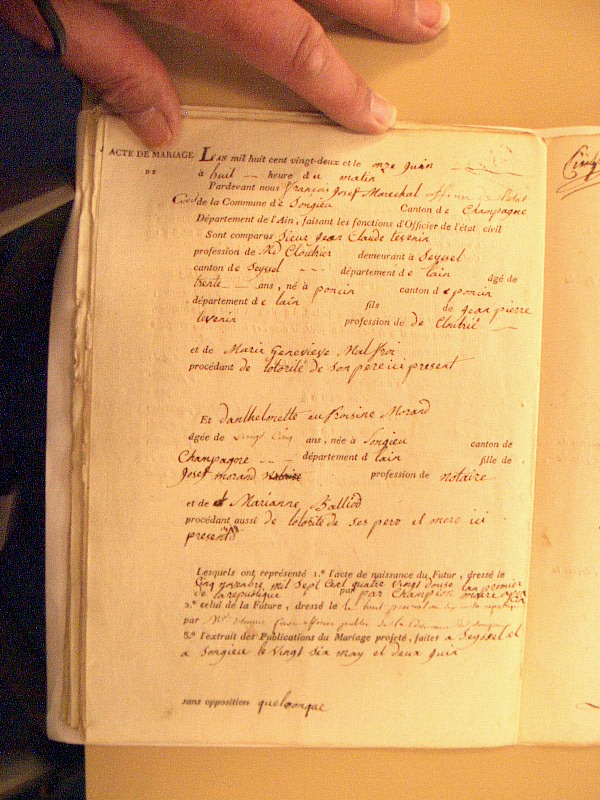 ACTE DE MARIAGE
DE
L'AN mil huit cent vingt-deux et le onze juin
à huit heure du matin
Pardevant nous françois Josef Marechal officier de l'état
Civil de la Commune de Songieu Canton de Champagne
Département de l'Ain, faisant les fonctions d'Officier de l'état civil
Sont comparus Sieur jean Claude tevenin
profession de Md Cloutrier demeurant à Seyssel
canton de Seyssel département de lain âgé de
trente ans, né à poncin canton de poncin
département de lain fils de jean pierre
tevenin profession de de Cloutrié
et de Marie Genevieve Malfroi
procédant de lotorité de son pere ici present
Et danthelmette eufroisine Morand
âgée de vingt cinq ans, née à Songieu canton de
Champagne département d lain fille de
Josef morand notaire profession de notaire
et de Marianne Balliod
procédant aussi de lotorité de ses pere et mere ici
presents
Lesquels ont représenté 1.º l'acte de naissance du Futur, dressé le
Cinq novembre mil sept Cent quatre vingt douse lan premier
de la republique par par Champion
2.º celui de la Future, dressé le huit
par de la Commune de Songieu
3.º l'extrait des Publications du Mariage projeté, faites a Seyssel et
a Songieu le vingt six may et deux juin
sans opposition quelconque
Civil